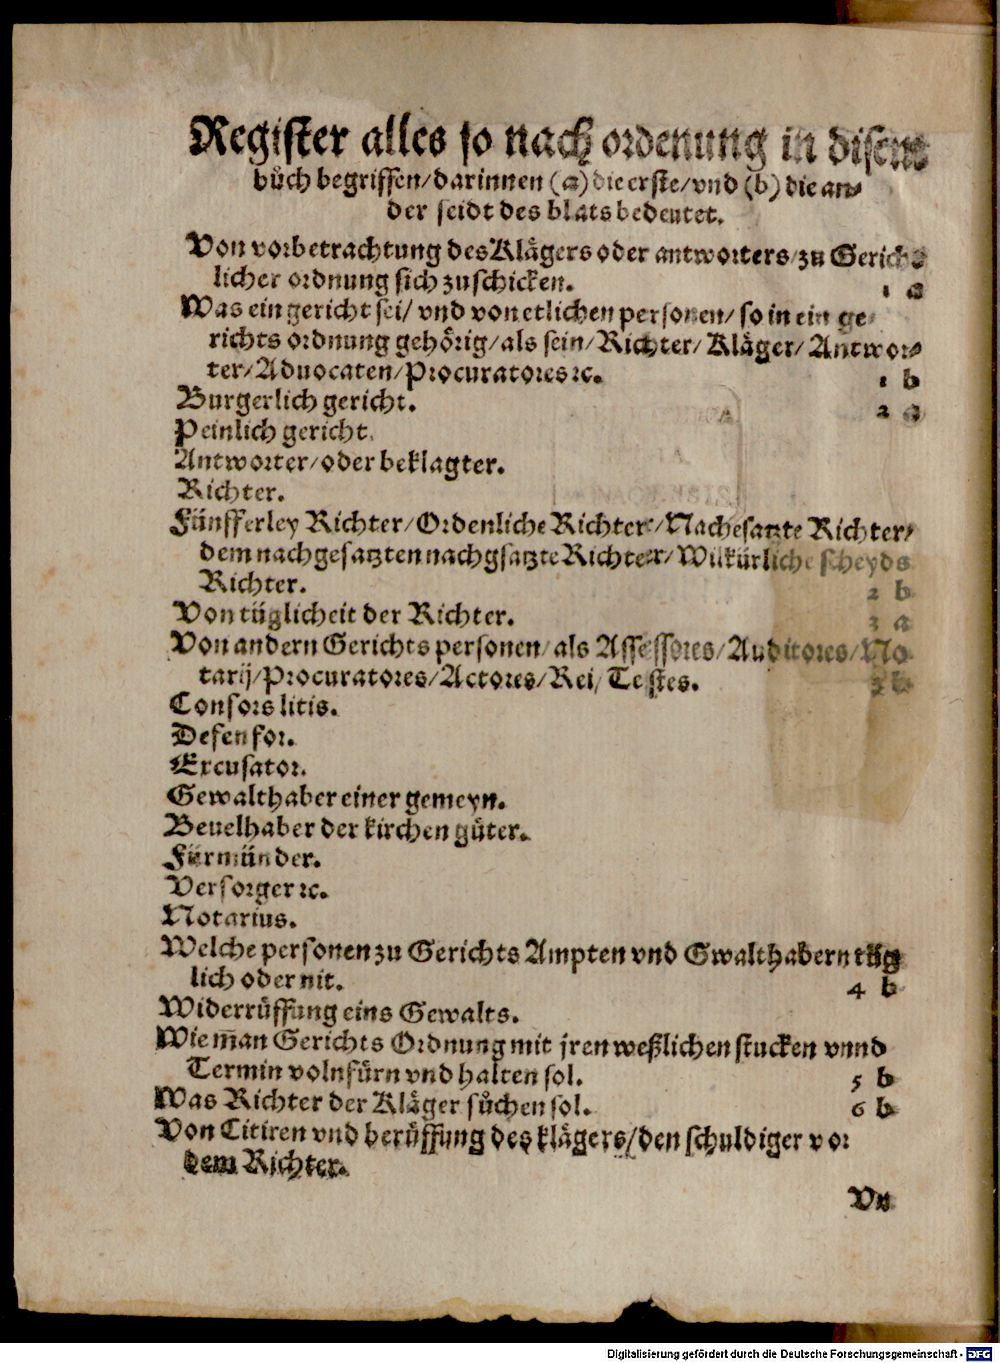 Register alles so nach ordenung in disem
bůch begriffen/darinnen (a) die erste/vnd (b) die an⸗
der seidt des blats bedeutet.
Von vorbetrachtung des Klägers oder antworters/zu Gericht⸗
licher ordnung sich zuschicken. 1 a
Was ein gericht sei/ vnd von etlichen personen/ so in ein ge⸗
richts ordnung gehörig/als sein/Richter/Kläger/Antwor⸗
ter/Aduocaten/Procuratores ꝛc. 1 b
Burgerlich gericht. 2 a
Peinlich gericht.
Antworter/oder beklagter.
Richter.
Fünfferley Richter/Ordenliche Richter/Nachesatzte Richter/
dem nachgesatzten nachgsatzte Richter/Wilkürliche scheyds
Richter. 2 b
Von tüglicheit der Richter. 3 a
Von andern Gerichts personen/als Assessores/Auditores/No
tarij/Procuratores/Actores/Rei/Testes. 3 b
Consors litis.
Defensor.
Excusator.
Gewalthaber einer gemeyn.
Beuelhaber der kirchen gůter.
Fürmünder.
Versorger ꝛc.
Notarius.
Welche personen zu Gerichts Ampten vnd Gwalthabern tüg
lich oder nit. 4 b
Widerrůffung eins Gewalts.
Wie m̄an Gerichts Ordnung mit jren weßlichen stucken vnnd
Termin volnfürn vnd halten sol. 5 b
Was Richter der Kläger sůchen sol. 6 b
Von Citiren vnd berůffung des klägers/den schuldiger vor
dem Richter.
Vn
Digitalisierung gefördert durch die Deutsche Forschungsgemeinschaft - DFG